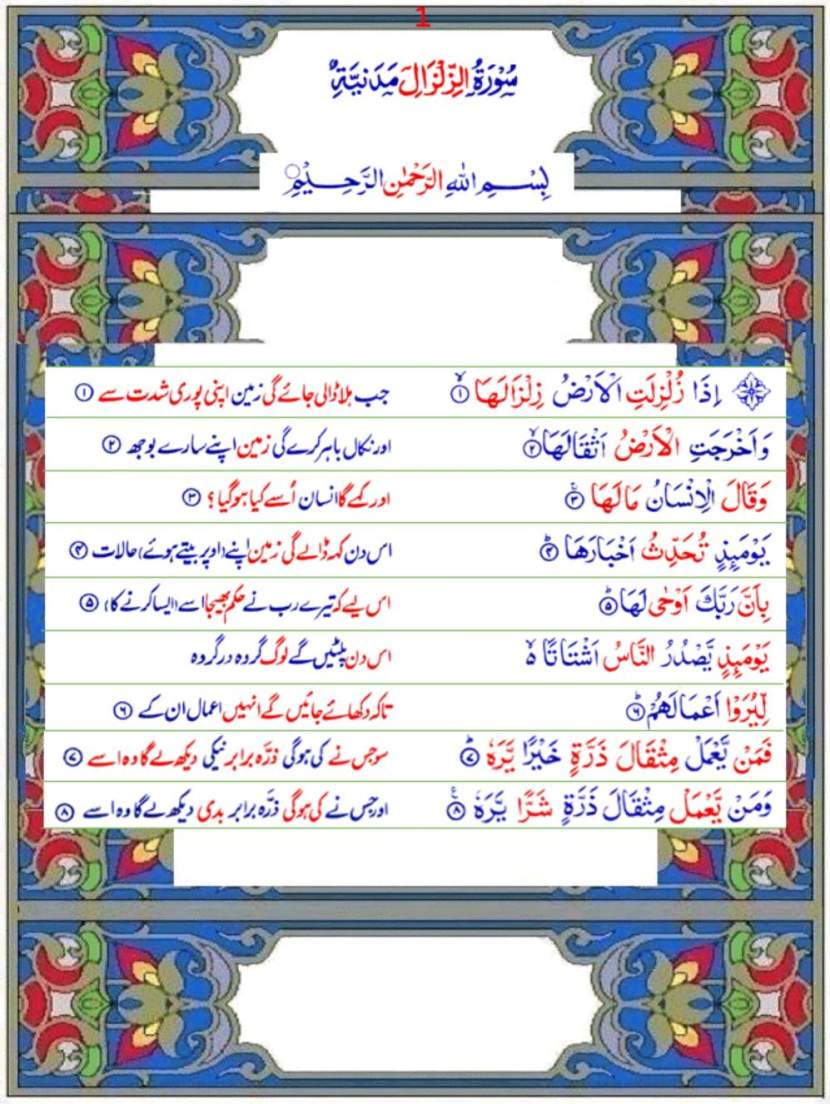 1
سُوْرَةُ الزِّلْزَالِ مَدَنِيَّةٌ
بِسْمِ اللهِ الرَّحْمٰنِ الرَّحِيْمِ
اِذَا زُلْزِلَتِ الْاَرْضُ زِلْزَالَهَا ۙ﴿۱﴾ جب ہلا ڈالی جائے گی زمین اپنی پوری شدت سے ﴿۱﴾
وَاَخْرَجَتِ الْاَرْضُ اَثْقَالَهَا ۙ﴿۲﴾ اور نکال باہر کرے گی زمین اپنے سارے بوجھ ﴿۲﴾
وَقَالَ الْاِنْسَانُ مَا لَهَا ۚ﴿۳﴾ اور کہے گا انسان اُسے کیا ہوگیا ؟ ﴿۳﴾
يَوْمَىِٕذٍ تُحَدِّثُ اَخْبَارَهَا ۙ﴿۴﴾ اس دن کہہ ڈالے گی زمین اپنے (اوپر بیتے ہوئے) حالات ﴿۴﴾
بِاَنَّ رَبَّكَ اَوْحٰى لَهَا ؕ﴿۵﴾ اس لیے کہ تیرے رب نے حکم بھیجا اسے (ایسا کرنے کا) ﴿۵﴾
يَوْمَىِٕذٍ يَّصْدُرُ النَّاسُ اَشْتَاتًا ۙ۬ اس دن پلٹیں گے لوگ گروہ در گروہ
لِّيُرَوْا اَعْمَالَهُمْ ؕ﴿۶﴾ تاکہ دکھائے جائیں گے انہیں اعمال ان کے ﴿۶﴾
فَمَنْ يَّعْمَلْ مِثْقَالَ ذَرَّةٍ خَيْرًا يَّرَهٗ ؕ﴿۷﴾ سو جس نے کی ہوگی ذرّہ برابر نیکی دیکھ لے گا وہ اسے ﴿۷﴾
وَمَنْ يَّعْمَلْ مِثْقَالَ ذَرَّةٍ شَرًّا يَّرَهٗ ۠﴿۸﴾ اور جس نے کی ہوگی ذرّہ برابر بدی دیکھ لے گا وہ اسے ﴿۸﴾